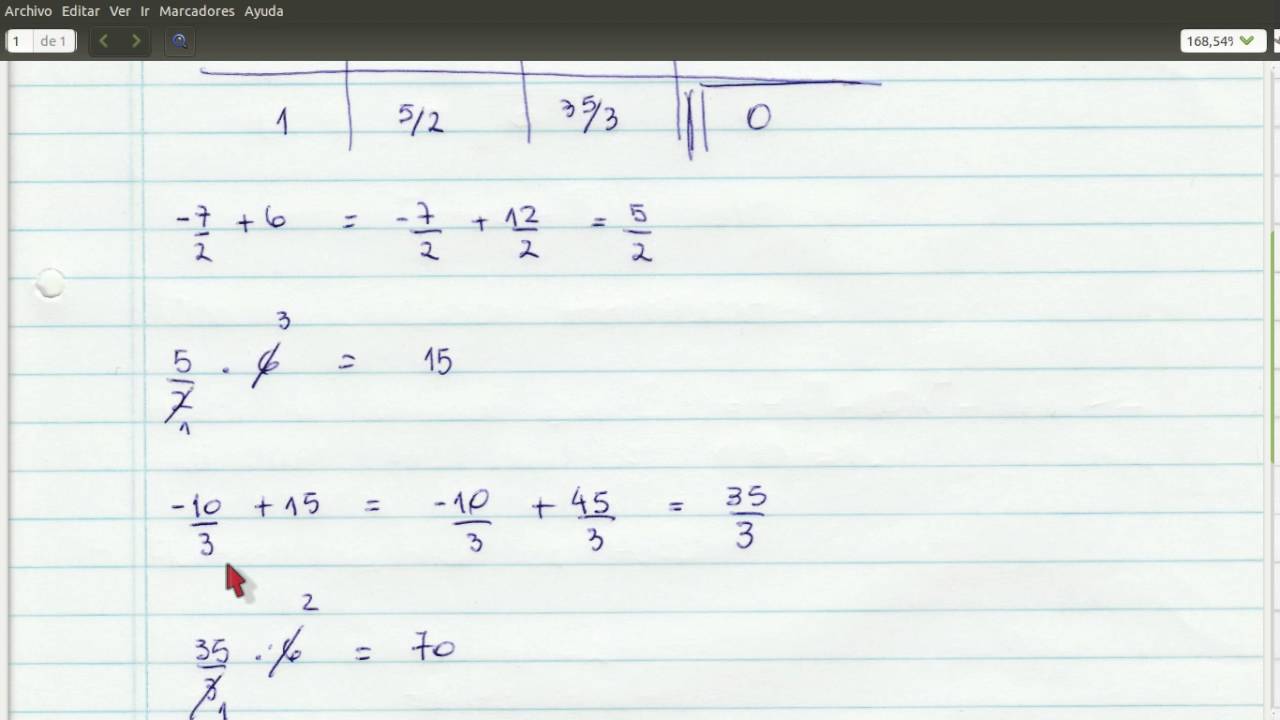 Archivo Editar Ver Ir Marcadores Ayuda
1 de 1 168,54%
1 5/2 35/3 0
-7/2 + 6 = -7/2 + 12/2 = 5/2
3
5/2 . 6 = 15
1
-10/3 + 15 = -10/3 + 45/3 = 35/3
2
35/3 . 6 = 70
1